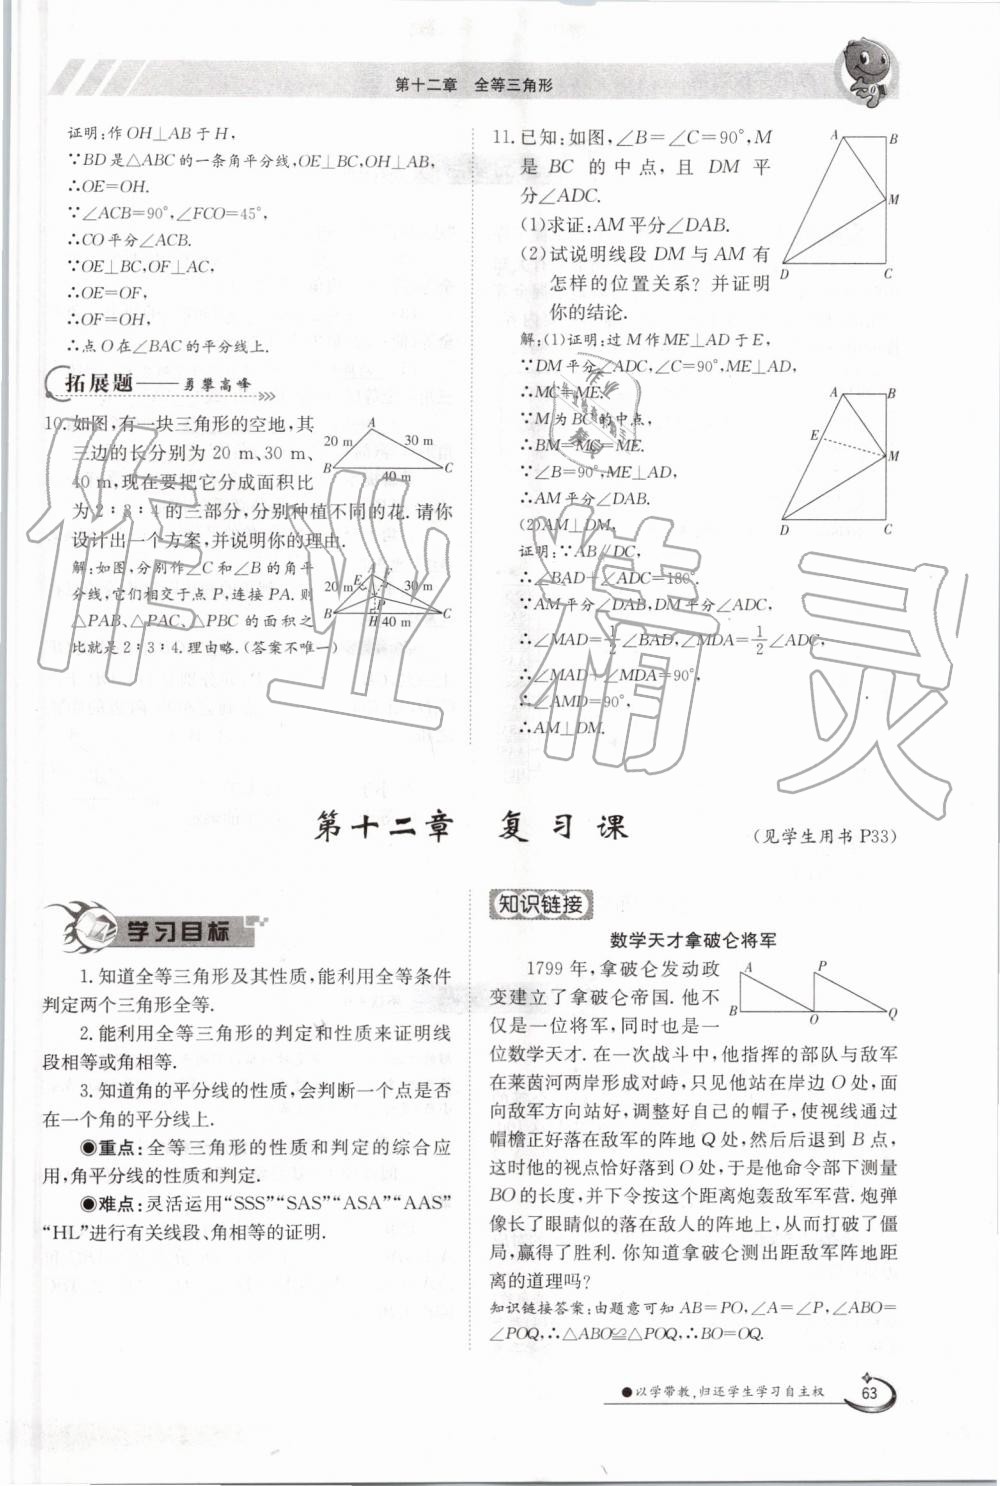 第十二章 全等三角形
证明:作OH⊥AB于H,
∵BD是△ABC的一条角平分线,OE⊥BC,OH⊥AB,
∴OE=OH.
∵∠ACB=90°,∠FCO=45°,
∴CO平分∠ACB.
∵OE⊥BC,OF⊥AC,
∴OE=OF,
∴OF=OH,
∴点O在∠BAC的平分线上.
拓展题——勇攀高峰
10.如图,有一块三角形的空地,其
三边的长分别为20 m、30 m、
40 m,现在要把它分成面积比
为2∶3∶4的三部分,分别种植不同的花.请你
设计出一个方案,并说明你的理由.
A
20 m
30 m
B
C
40 m
解:如图,分别作∠C和∠B的角平
分线,它们相交于点P,连接PA.则
△PAB、△PAC、△PBC的面积之
比就是2∶3∶4.理由略.(答案不唯一)
A
20 m
E
30 m
P
B
H
40 m
C
11.已知:如图,∠B=∠C=90°,M
是BC的中点,且DM平
分∠ADC.
(1)求证:AM平分∠DAB.
(2)试说明线段DM与AM有
怎样的位置关系?并证明
你的结论.
A
B
M
D
C
解:(1)证明:过M作ME⊥AD于E,
∵DM平分∠ADC,∠C=90°,ME⊥AD,
∴MC=ME.
∵M为BC的中点,
∴BM=MC=ME.
∵∠B=90°,ME⊥AD,
∴AM平分∠DAB.
(2)AM⊥DM,
证明:∵AB∥DC,
∴∠BAD+∠ADC=180°.
∵AM平分∠DAB,DM平分∠ADC,
∴∠MAD=1/2∠BAD,∠MDA=1/2∠ADC,
∴∠MAD+∠MDA=90°,
∴∠AMD=90°,
∴AM⊥DM.
A
B
E
M
D
C
作业精灵
第十二章 复习课
(见学生用书P33)
学习目标
1.知道全等三角形及其性质,能利用全等条件
判定两个三角形全等.
2.能利用全等三角形的判定和性质来证明线
段相等或角相等.
3.知道角的平分线的性质,会判断一个点是否
在一个角的平分线上.
●重点:全等三角形的性质和判定的综合应
用,角平分线的性质和判定.
●难点:灵活运用“SSS”“SAS”“ASA”“AAS”
“HL”进行有关线段、角相等的证明.
知识链接
数学天才拿破仑将军
1799年,拿破仑发动政
变建立了拿破仑帝国.他不
仅是一位将军,同时也是一
位数学天才.在一次战斗中,他指挥的部队与敌军
在莱茵河两岸形成对峙,只见他站在岸边O处,面
向敌军方向站好,调整好自己的帽子,使视线通过
帽檐正好落在敌军的阵地Q处,然后后退到B点,
这时他的视点恰好落到O处,于是他命令部下测量
BO的长度,并下令按这个距离炮轰敌军军营.炮弹
像长了眼睛似的落在敌人的阵地上,从而打破了僵
局,赢得了胜利.你知道拿破仑测出距敌军阵地距
离的道理吗?
A
P
B
O
Q
知识链接答案:由题意可知AB=PO,∠A=∠P,∠ABO=
∠POQ,∴△ABO≌△POQ,∴BO=OQ.
●以学带教,归还学生学习自主权
63